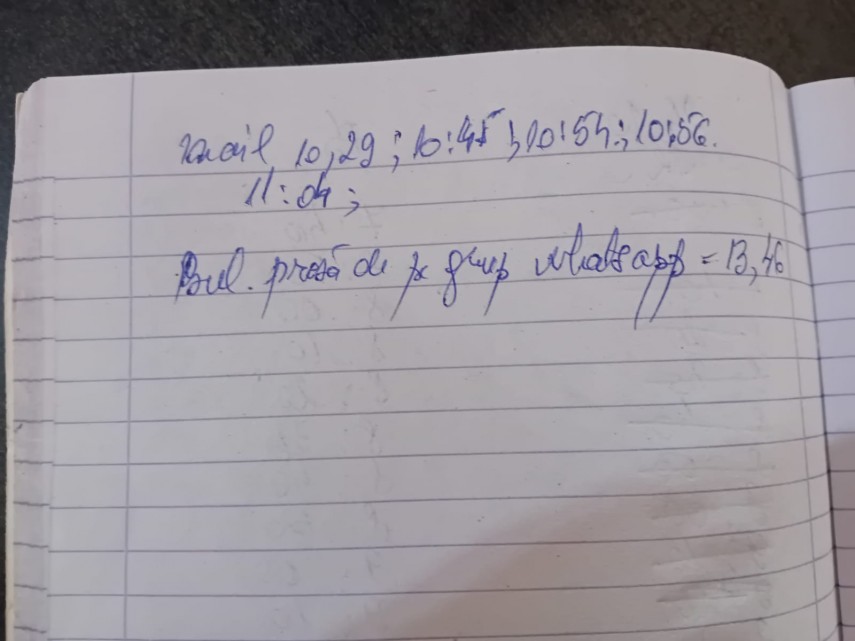 mail 10,29; 10:45; 10:54; 10:56.
11:04;
Bul. presă de pe grup whatsapp = 13,46